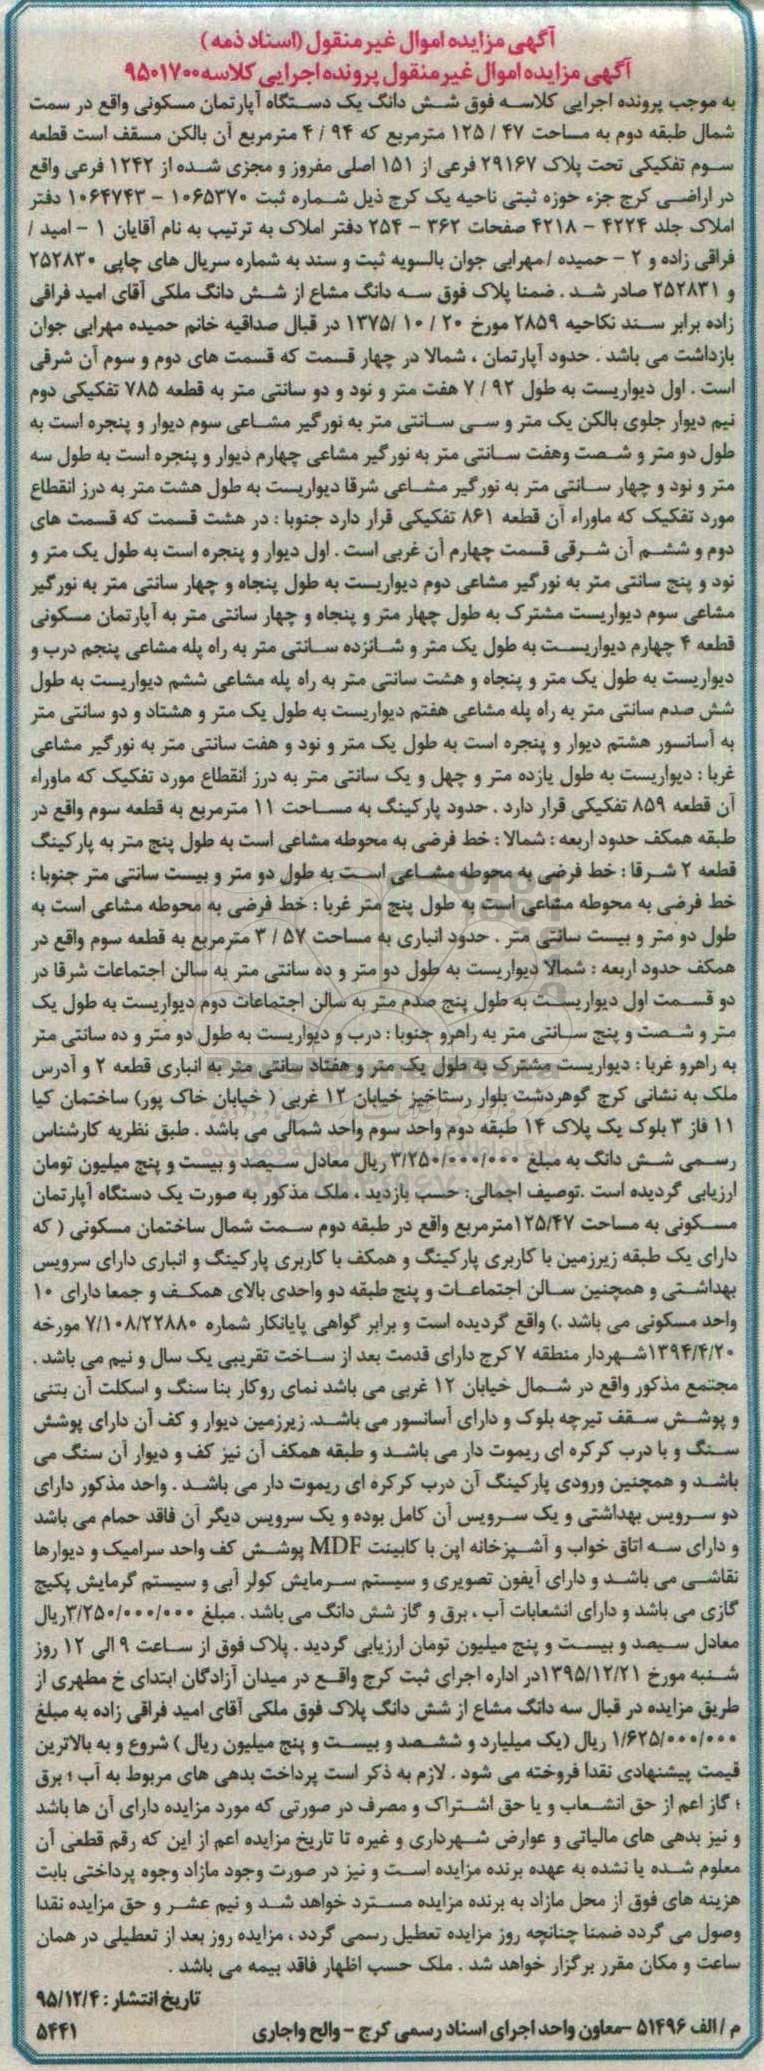 آگهی مزایده اموال غیر منقول (اسناد ذمه)
آگهی مزایده اموال غیر منقول پرونده اجرایی کلاسه ۹۵۰۱۷۰۰
به موجب پرونده اجرایی کلاسه فوق شش دانگ یک دستگاه آپارتمان مسکونی واقع در سمت
شمال طبقه دوم به مساحت ۴۷ / ۱۲۵ مترمربع که ۹۴ / ۴ مترمربع آن بالکن مسقف است قطعه
سوم تفکیکی تحت پلاک ۲۹۱۶۷ فرعی از ۱۵۱ اصلی مفروز و مجزی شده از ۱۲۴۲ فرعی واقع
در اراضی کرج جزء حوزه ثبتی ناحیه یک کرج ذیل شماره ثبت ۱۰۶۵۳۷۰ – ۱۰۶۴۷۴۳ دفتر
املاک جلد ۴۲۲۴ – ۴۲۱۸ صفحات ۳۶۲ – ۲۵۴ دفتر املاک به ترتیب به نام آقایان ۱ – امید /
فراقی زاده و ۲ – حمیده /مهرابی جوان بالسویه ثبت و سند به شماره سریال های چاپی ۲۵۲۸۳۰
و ۲۵۲۸۳۱ صادر شد . ضمنا پلاک فوق سه دانگ مشاع از شش دانگ ملکی آقای امید فراقی
زاده برابر سند نکاحیه ۲۸۵۹ مورخ ۲۰ / ۱۰ /۱۳۷۵ در قبال صداقیه خانم حمیده مهرابی جوان
بازداشت می باشد . حدود آپارتمان ، شمالا در چهار قسمت که قسمت های دوم و سوم آن شرقی
است . اول دیواریست به طول ۹۲ / ۷ هفت متر و نود و دو سانتی متر به قطعه ۷۸۵ تفکیکی دوم
نیم دیوار جلوی بالکن یک متر و سی سانتی متر به نورگیر مشاعی سوم دیوار و پنجره است به
طول دو متر و شصت وهفت سانتی متر به نورگیر مشاعی چهارم دیوار و پنجره است به طول سه
متر و نود و چهار سانتی متر به نورگیر مشاعی شرقا دیواریست به طول هشت متر به درز انقطاع
مورد تفکیک که ماوراء آن قطعه ۸۶۱ تفکیکی قرار دارد جنوبا : در هشت قسمت که قسمت های
دوم و ششم آن شرقی قسمت چهارم آن غربی است . اول دیوار و پنجره است به طول یک متر و
نود و پنج سانتی متر به نورگیر مشاعی دوم دیواریست به طول پنجاه و چهار سانتی متر به نورگیر
مشاعی سوم دیواریست مشترک به طول چهار متر و پنجاه و چهار سانتی متر به آپارتمان مسکونی
قطعه ۴ چهارم دیواریست به طول یک متر و شانزده سانتی متر به راه پله مشاعی پنجم درب و
دیواریست به طول یک متر و پنجاه و هشت سانتی متر به راه پله مشاعی ششم دیواریست به طول
شش صدم سانتی متر به راه پله مشاعی هفتم دیواریست به طول یک متر و هشتاد و دو سانتی متر
به آسانسور هشتم دیوار و پنجره است به طول یک متر و نود و هفت سانتی متر به نورگیر مشاعی
غربا : دیواریست به طول یازده متر و چهل و یک سانتی متر به درز انقطاع مورد تفکیک که ماوراء
آن قطعه ۸۵۹ تفکیکی قرار دارد . حدود پارکینگ به مساحت ۱۱ مترمربع به قطعه سوم واقع در
طبقه همکف حدود اربعه : شمالا : خط فرضی به محوطه مشاعی است به طول پنج متر به پارکینگ
قطعه ۲ شرقا : خط فرضی به محوطه مشاعی است به طول دو متر و بیست سانتی متر جنوبا :
خط فرضی به محوطه مشاعی است به طول پنج متر غربا : خط فرضی به محوطه مشاعی است به
طول دو متر و بیست سانتی متر . حدود انباری به مساحت ۵۷ / ۳ مترمربع به قطعه سوم واقع در
همکف حدود اربعه : شمالا دیواریست به طول دو متر و ده سانتی متر به سالن اجتماعات شرقا در
دو قسمت اول دیواریست به طول پنج صدم متر به سالن اجتماعات دوم دیواریست به طول یک
متر و شصت و پنج سانتی متر به راهرو جنوبا : درب و دیواریست به طول دو متر و ده سانتی متر
به راهرو غربا : دیواریست مشترک به طول یک متر و هفتاد سانتی متر به انباری قطعه ۲ و آدرس
ملک به نشانی کرج گوهردشت بلوار رستاخیز خیابان ۱۲ غربی ( خیابان خاک پور) ساختمان کیا
۱۱ فاز ۳ بلوک یک پلاک ۱۴ طبقه دوم واحد سوم واحد شمالی می باشد . طبق نظریه کارشناس
رسمی شش دانگ به مبلغ ۳/۲۵۰/۰۰۰/۰۰۰ ریال معادل سیصد و بیست و پنج میلیون تومان
ارزیابی گردیده است .توصیف اجمالی: حسب بازدید ، ملک مذکور به صورت یک دستگاه آپارتمان
مسکونی به مساحت ۱۲۵/۴۷مترمربع واقع در طبقه دوم سمت شمال ساختمان مسکونی ( که
دارای یک طبقه زیرزمین با کاربری پارکینگ و همکف با کاربری پارکینگ و انباری دارای سرویس
بهداشتی و همچنین سالن اجتماعات و پنج طبقه دو واحدی بالای همکف و جمعا دارای ۱۰
واحد مسکونی می باشد .) واقع گردیده است و برابر گواهی پایانکار شماره ۷/۱۰۸/۲۲۸۸۰ مورخه
۱۳۹۴/۴/۲۰شهردار منطقه ۷ کرج دارای قدمت بعد از ساخت تقریبی یک سال و نیم می باشد .
مجتمع مذکور واقع در شمال خیابان ۱۲ غربی می باشد نمای روکار بنا سنگ و اسکلت آن بتنی
و پوشش سقف تیرچه بلوک و دارای آسانسور می باشد. زیرزمین دیوار و کف آن دارای پوشش
سنگ و با درب کرکره ای ریموت دار می باشد و طبقه همکف آن نیز کف و دیوار آن سنگ می
باشد و همچنین ورودی پارکینگ آن درب کرکره ای ریموت دار می باشد . واحد مذکور دارای
دو سرویس بهداشتی و یک سرویس آن کامل بوده و یک سرویس دیگر آن فاقد حمام می باشد
و دارای سه اتاق خواب و آشپزخانه اپن با کابینت MDF پوشش کف واحد سرامیک و دیوارها
نقاشی می باشد و دارای آیفون تصویری و سیستم سرمایش کولر آبی و سیستم گرمایش پکیج
گازی می باشد و دارای انشعابات آب ، برق و گاز شش دانگ می باشد . مبلغ ۳/۲۵۰/۰۰۰/۰۰۰ریال
معادل سیصد و بیست و پنج میلیون تومان ارزیابی گردید . پلاک فوق از ساعت ۹ الی ۱۲ روز
شنبه مورخ ۱۳۹۵/۱۲/۲۱در اداره اجرای ثبت کرج واقع در میدان آزادگان ابتدای خ مطهری از
طریق مزایده در قبال سه دانگ مشاع از شش دانگ پلاک فوق ملکی آقای امید فراقی زاده به مبلغ
۱/۶۲۵/۰۰۰/۰۰۰ ریال (یک میلیارد و ششصد و بیست و پنج میلیون ریال ) شروع و به بالاترین
قیمت پیشنهادی نقدا فروخته می شود . لازم به ذکر است پرداخت بدهی های مربوط به آب ؛ برق
؛ گاز اعم از حق انشعاب و یا حق اشتراک و مصرف در صورتی که مورد مزایده دارای آن ها باشد
و نیز بدهی های مالیاتی و عوارض شهرداری و غیره تا تاریخ مزایده اعم از این که رقم قطعی آن
معلوم شده یا نشده به عهده برنده مزایده است و نیز در صورت وجود مازاد وجوه پرداختی بابت
هزینه های فوق از محل مازاد به برنده مزایده مسترد خواهد شد و نیم عشر و حق مزایده نقدا
وصول می گردد ضمنا چنانچه روز مزایده تعطیل رسمی گردد ، مزایده روز بعد از تعطیلی در همان
ساعت و مکان مقرر برگزار خواهد شد . ملک حسب اظهار فاقد بیمه می باشد .
تاریخ انتشار : ۹۵/۱۲/۴
م / الف ۵۱۴۹۶ –معاون واحد اجرای اسناد رسمی کرج – والح واجاری ۵۴۴۱